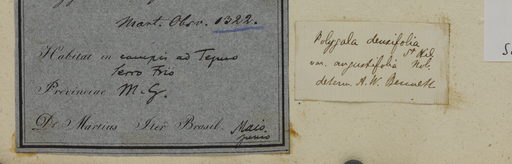 Mart. Obs. 1322.
Habitat in campis ad Tejuco
Serro Frio
Provinciae M. G.
Dr Martius Iter Brasil. Maio
Junio
Polygala densifolia
St Hil
var. angustifolia Nob.
determ. A. W. Bennett